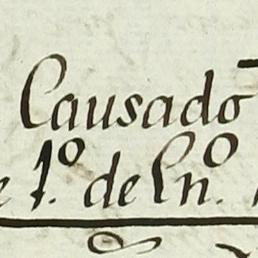 Causado
e 1.º de En.º